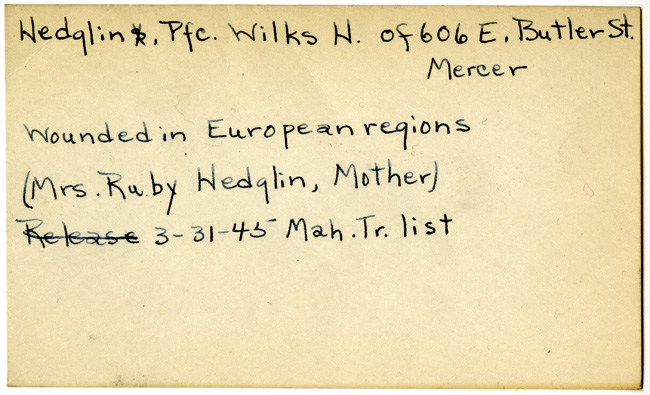 Hedglin, Pfc. Wilks H. of 606 E. Butler St.
Mercer
Wounded in European regions
(Mrs. Ruby Hedglin, Mother)
Release 3-31-45 Mah. Tr. list